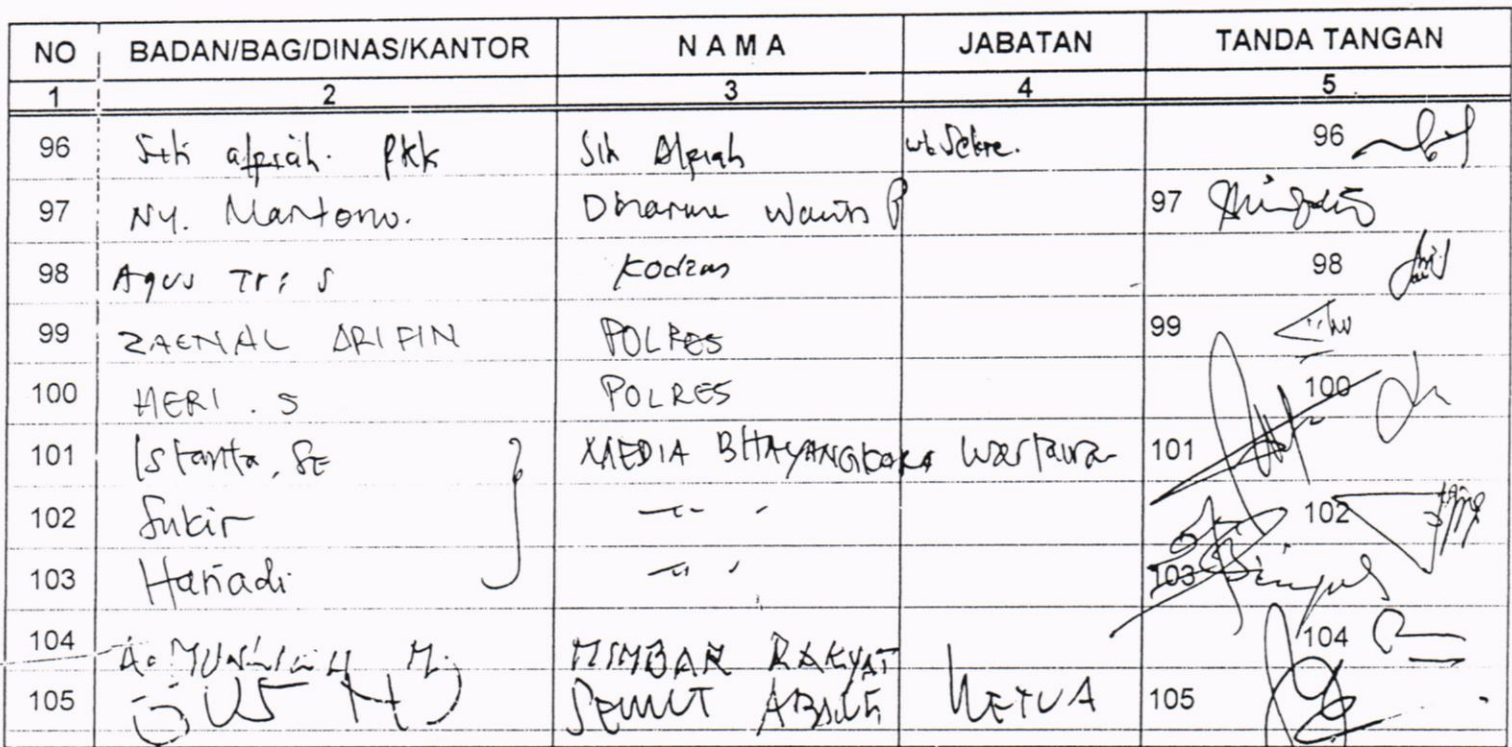 NO BADAN/BAG/DINAS/KANTOR NAMA JABATAN TANDA TANGAN
1 2 3 4 5
96 Siti alpiah. PKK Siti Alpiah wk Sekre. 96
97 NY. Martono. Dharma Wanita P 97
98 Agus Tri S Kodim 98
99 ZAENAL ARIFIN POLRES 99
100 HERI . S POLRES 100
101 Istanta, SE MEDIA BHAYANGKARA Wartawan 101
102 Sukir 102
103 Hariadi 103
104 A. M. MIMBAR RAKYAT 104
105 SEMUT ABANG KETUA 105